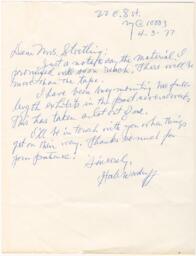 22 E. 8 St.
NYC 10003
4-3-77
Dear Mrs. Stelling:
Just a note to say the material I
promised will soon reach. There will be
more than the tape.
I have been busy mounting two full
length exhibits in the past several weeks
This has taken a lot out of me.
I'll be in touch with you when things
get on their way. Thanks so much for
your patience!
Sincerely,
Hale Woodruff